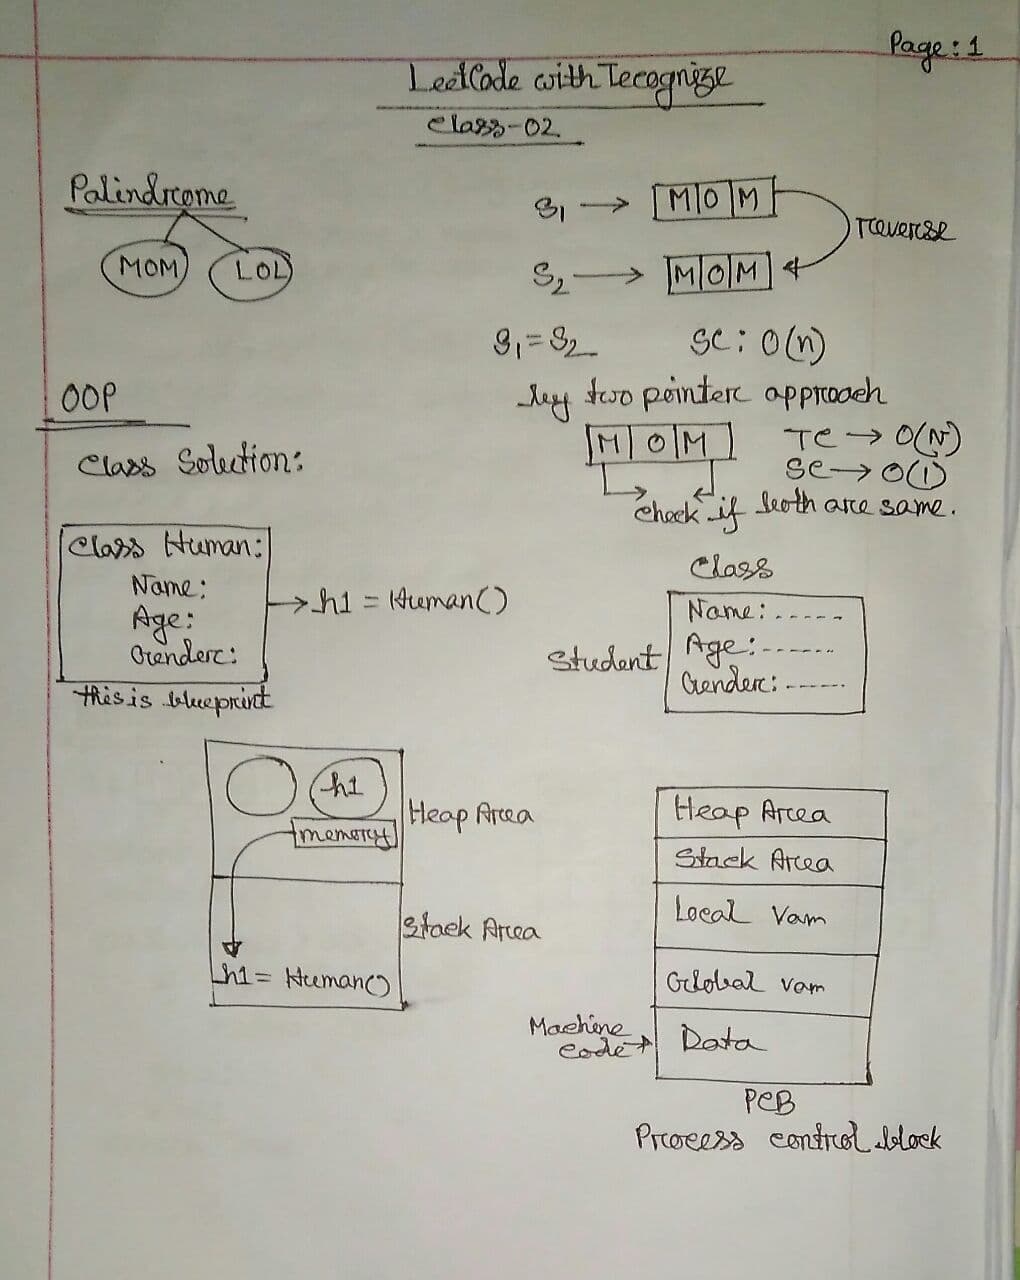 Page: 1
LeetCode with Tecognize
Class-02
Palindrome
MOM LOL
S1 → M O M
reverse
S2 → M O M
S1 = S2 SC: O(n)
by two pointer approach
M O M
TC → O(N)
SC → O(1)
check if both are same.
OOP
Class Solution:
Class Human:
Name:
Age:
Gender:
this is blueprint
→ h1 = Human()
Class
Student
Name: -----
Age: ------
Gender: -----
h1
memory
Heap Area
Stack Area
h1 = Human()
Heap Area
Stack Area
Local Vam
Global vam
Machine
Code →
Data
PCB
Process control block